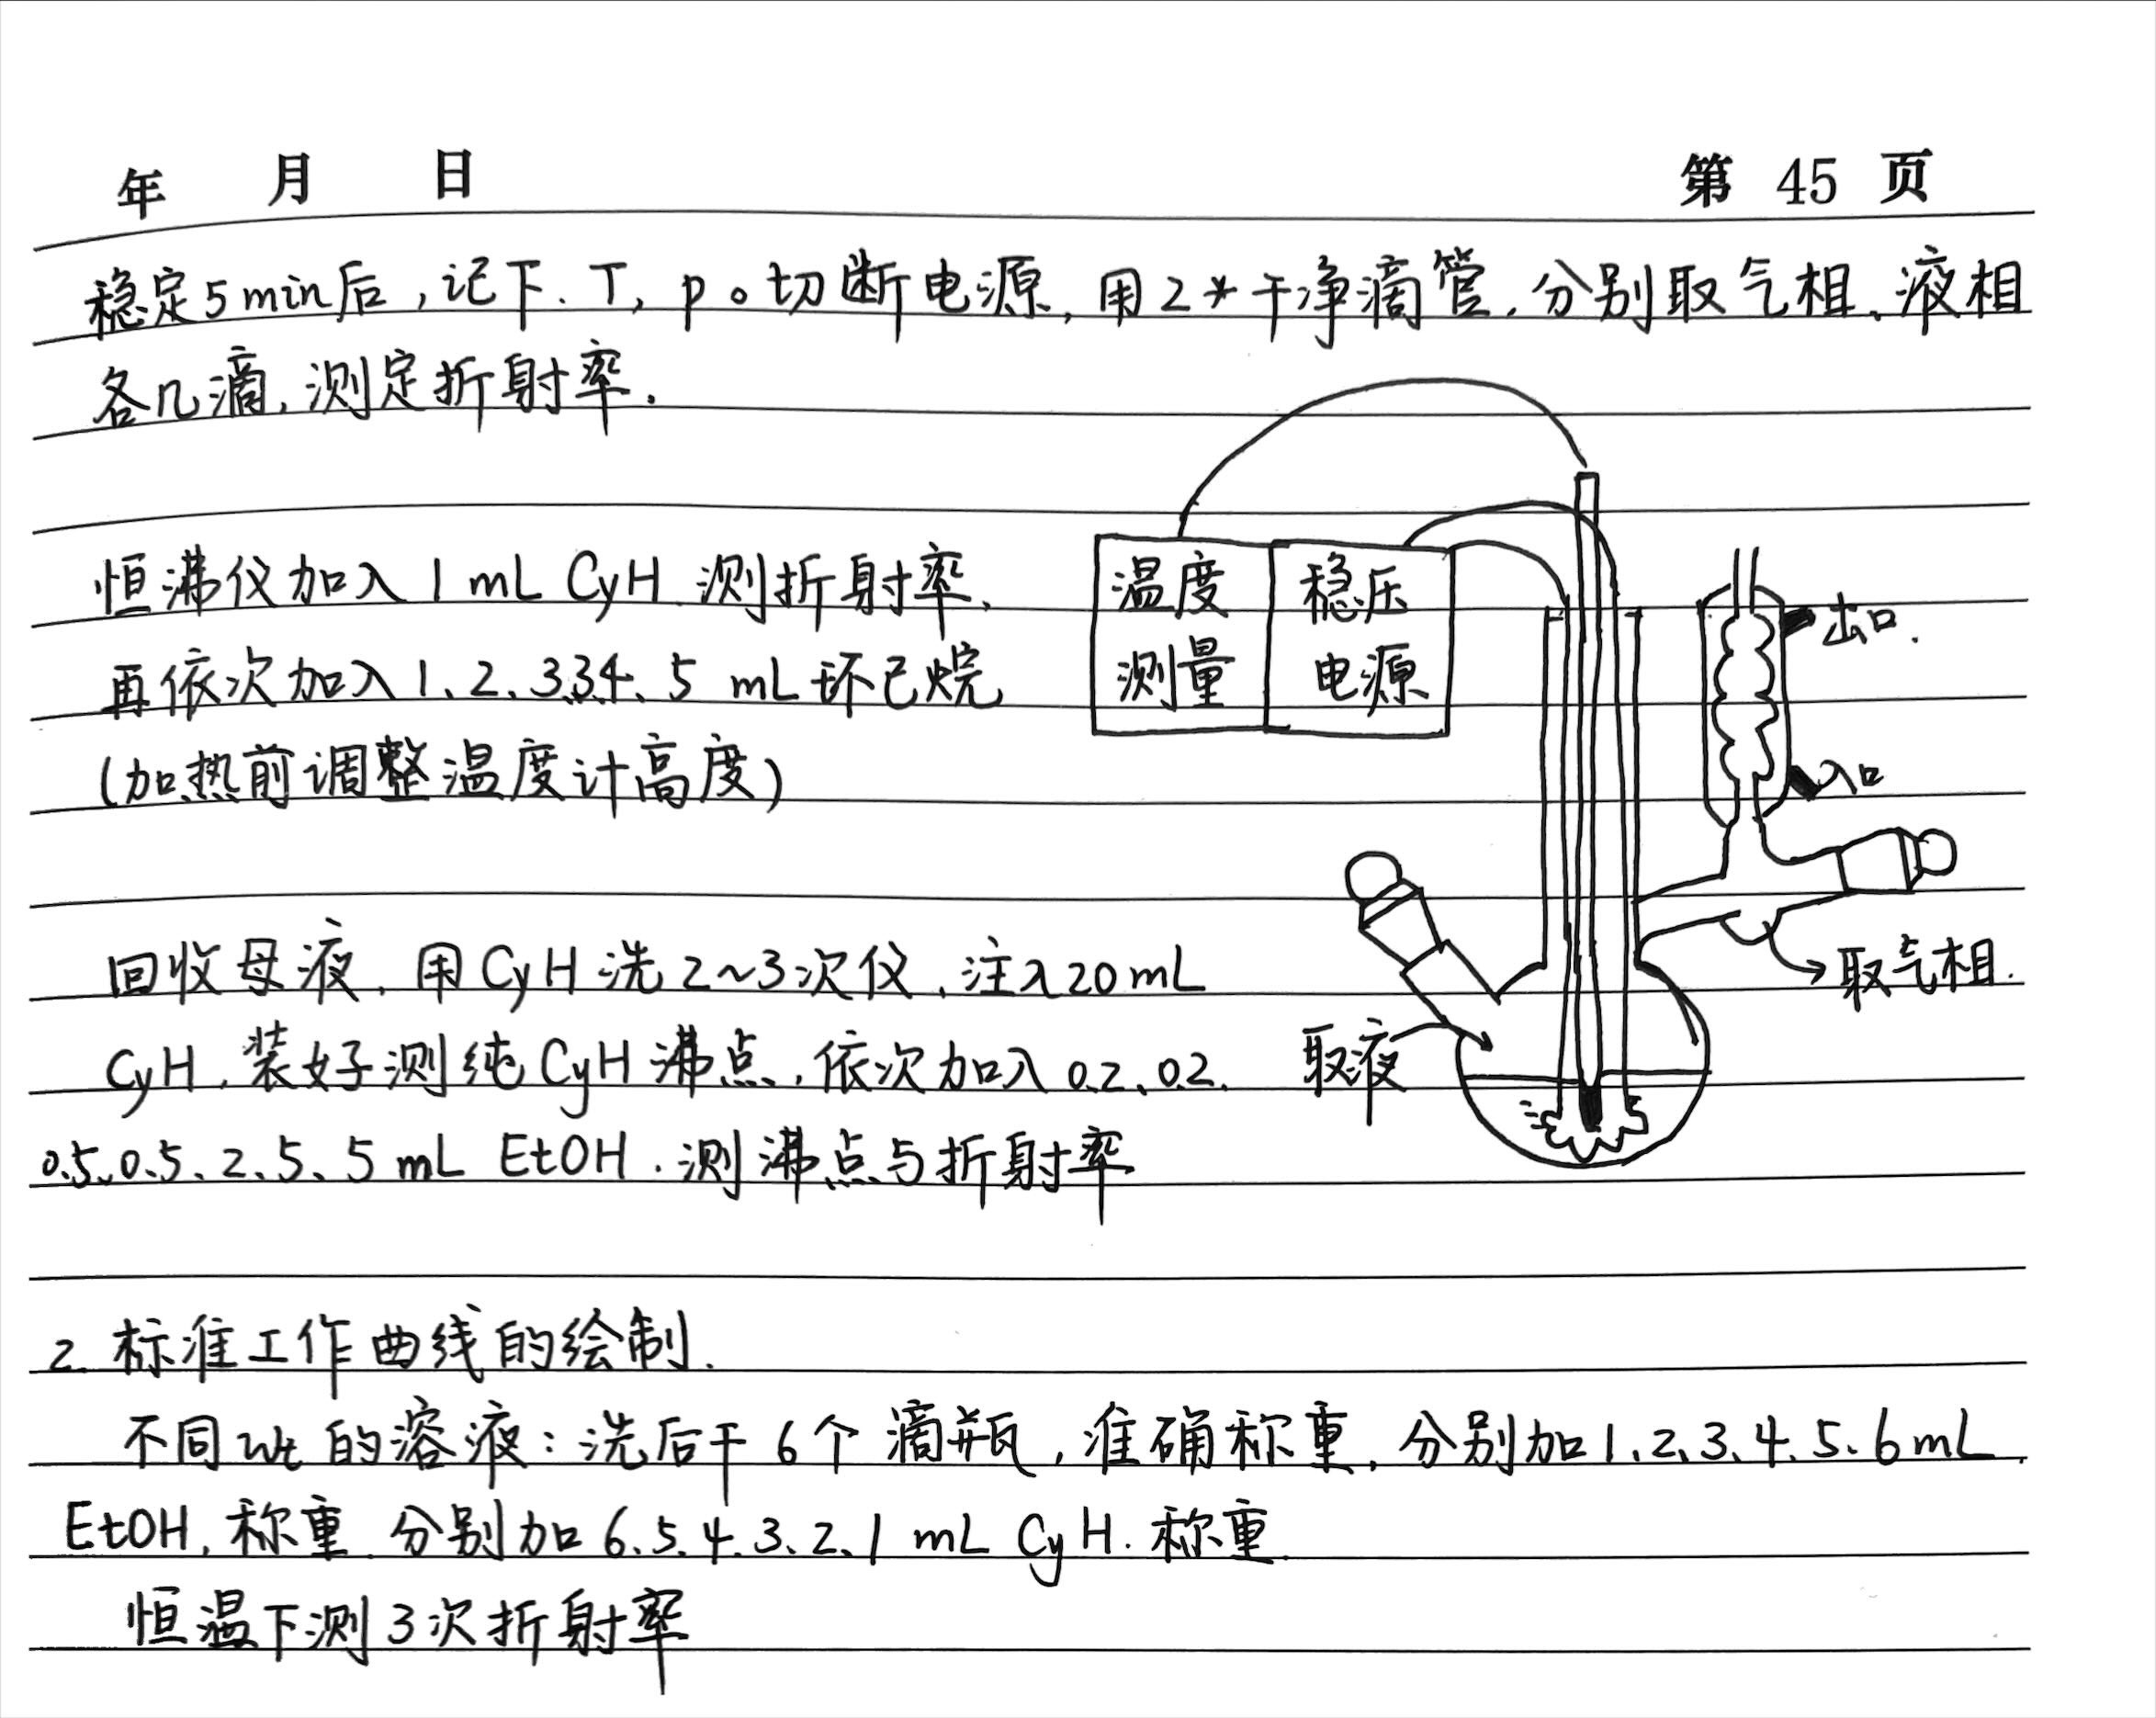 年 月 日 第 45 页
稳定5min后,记下.T,p。切断电源,用2*干净滴管,分别取气相、液相
各几滴,测定折射率.
恒沸仪加入1mL CyH.测折射率、
再依次加入1、2、3、3、4、5 mL环己烷
(加热前调整温度计高度)
温度
测量
稳压
电源
出口.
入口
取气相.
取液
回收母液,用CyH洗2~3次仪,注入20mL
CyH,装好测纯CyH沸点,依次加入0.2、0.2、
0.5、0.5、2、5、5mL EtOH.测沸点与折射率
2.标准工作曲线的绘制.
不同wt的溶液:洗后干6个滴瓶,准确称重,分别加1、2、3、4、5、6mL
EtOH,称重.分别加6、5、4、3、2、1mL CyH.称重
恒温下测3次折射率